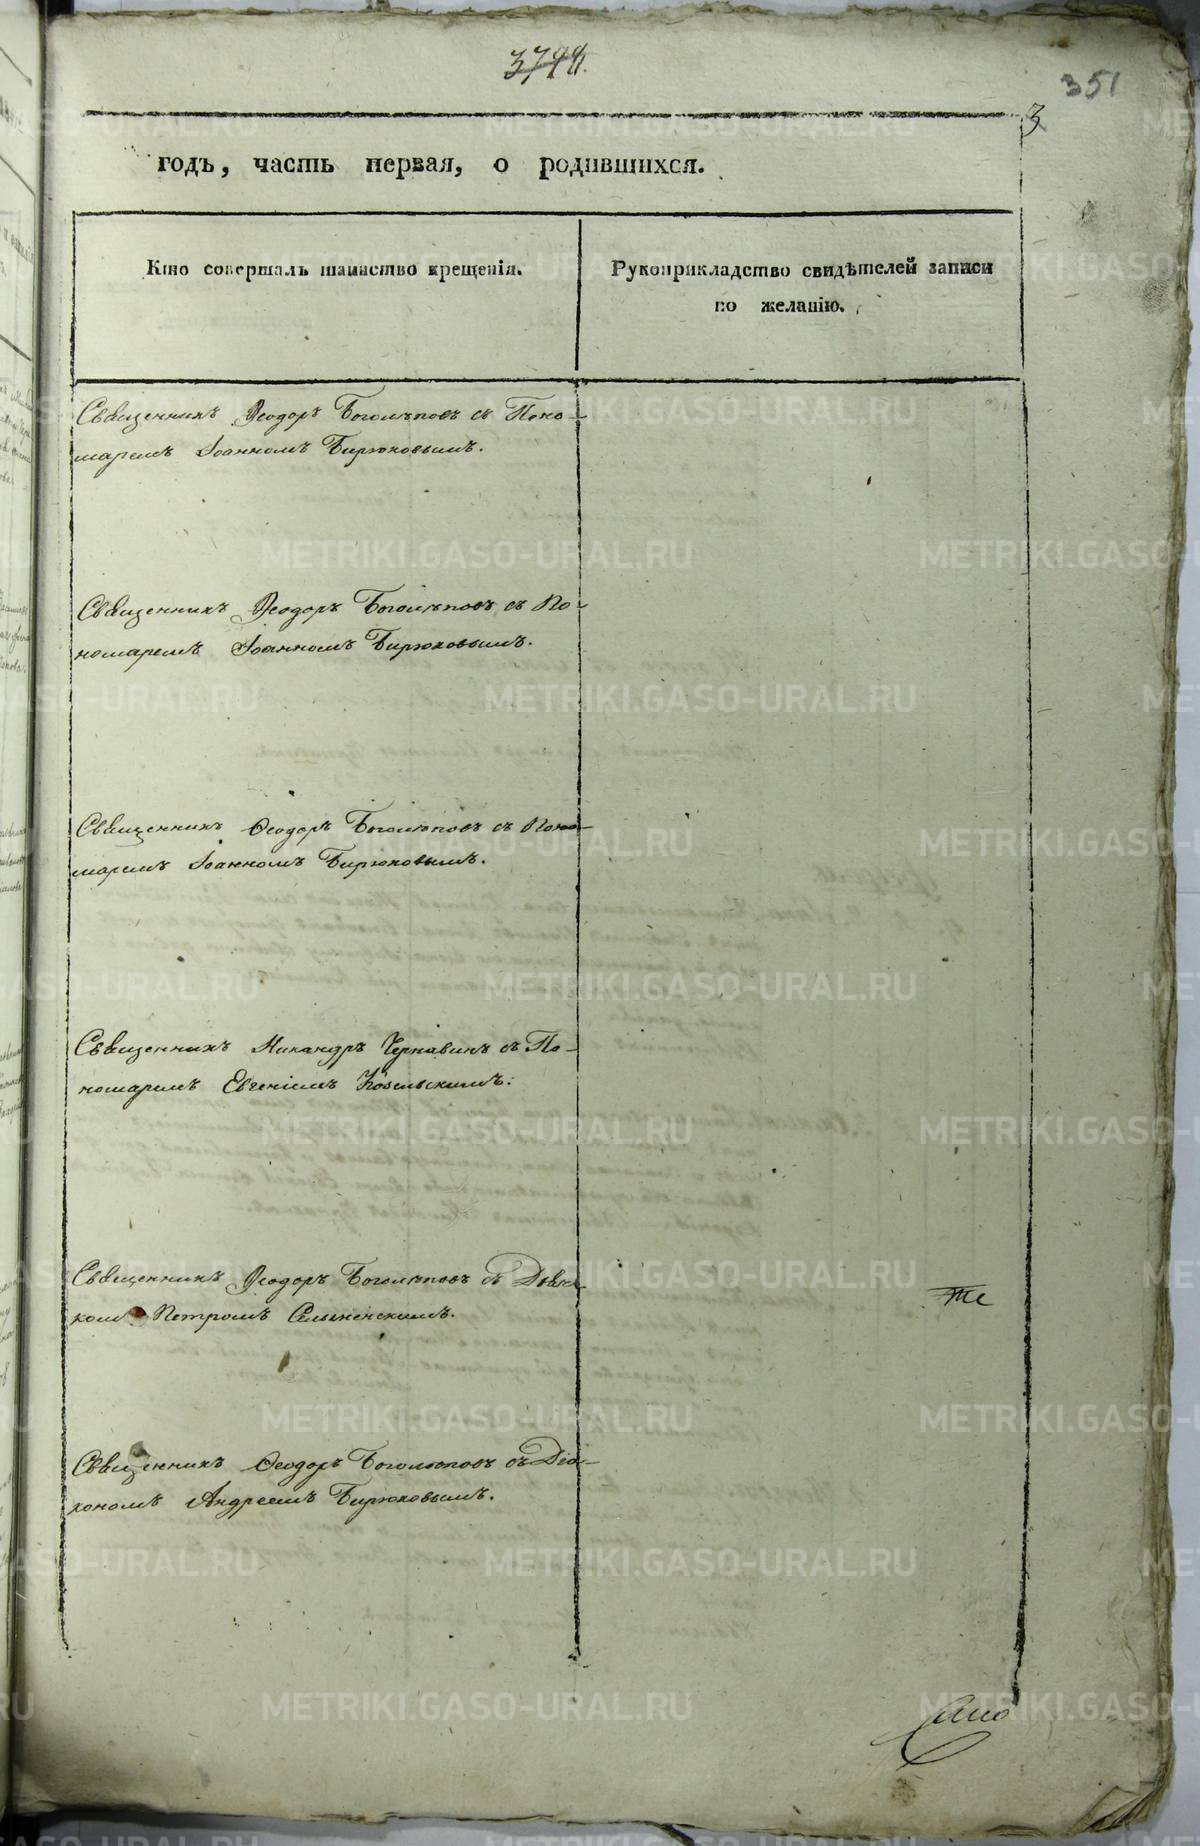 351
3
годъ, часть первая, о родившихся.
Кто совершалъ таинство крещенія.
Рукоприкладство свидѣтелей записи
по желанію.
Священникъ Ѳеодоръ Боголѣповъ съ Поно-
маремъ Іоанномъ Бирюковымъ.
Священникъ Ѳеодоръ Боголѣповъ съ По-
номаремъ Іоанномъ Бирюковымъ.
Священникъ Ѳеодоръ Боголѣповъ съ Поно-
маремъ Іоанномъ Бирюковымъ.
Священникъ Никандръ Чернавинъ съ По-
номаремъ Евгеніемъ Козельскимъ.
Священникъ Ѳеодоръ Боголѣповъ съ
Петромъ
Священникъ Ѳеодоръ Боголѣповъ съ Діа-
кономъ Андреемъ Бирюковымъ.
METRIKI.GASO-URAL.RU